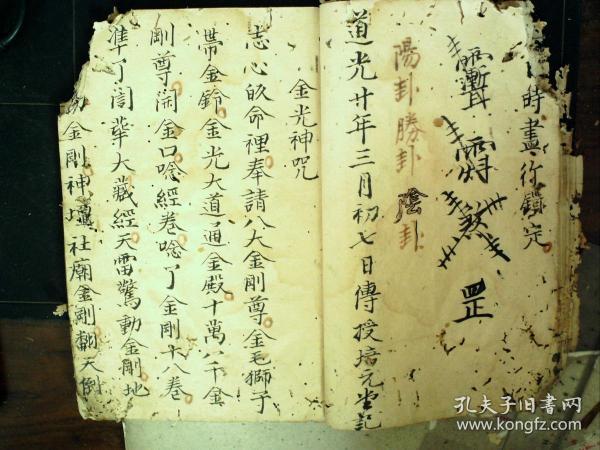 時盡行鎖定
煞罡
陽卦勝卦陰卦
道光廿年三月初七日傳授培元堂記
金光神咒
志心皈命裡奉請八大金剛尊金毛獅子
帶金鈴金光大道通金殿十萬八千金
剛尊開金口唸經卷唸了金剛十八卷
準了閻華大藏經天雷驚動金剛地
金剛神壇社廟金剛翻天倒
孔夫子旧書网
www.kongfz.com